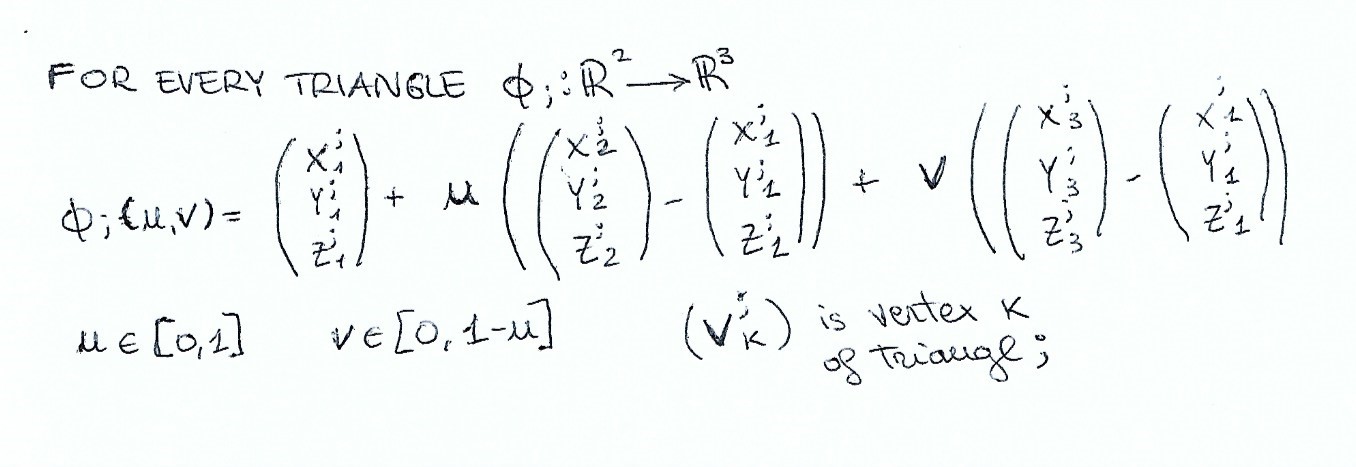 FOR EVERY TRIANGLE ϕⱼ: ℝ² → ℝ³
ϕⱼ(u,v) = (x₁ʲ y₁ʲ z₁ʲ) + u ((x₂ʲ y₂ʲ z₂ʲ) - (x₁ʲ y₁ʲ z₁ʲ)) + v ((x₃ʲ y₃ʲ z₃ʲ) - (x₁ʲ y₁ʲ z₁ʲ))
u ∈ [0,1] v ∈ [0,1-u] (vₖʲ) is vertex k
of triangle j